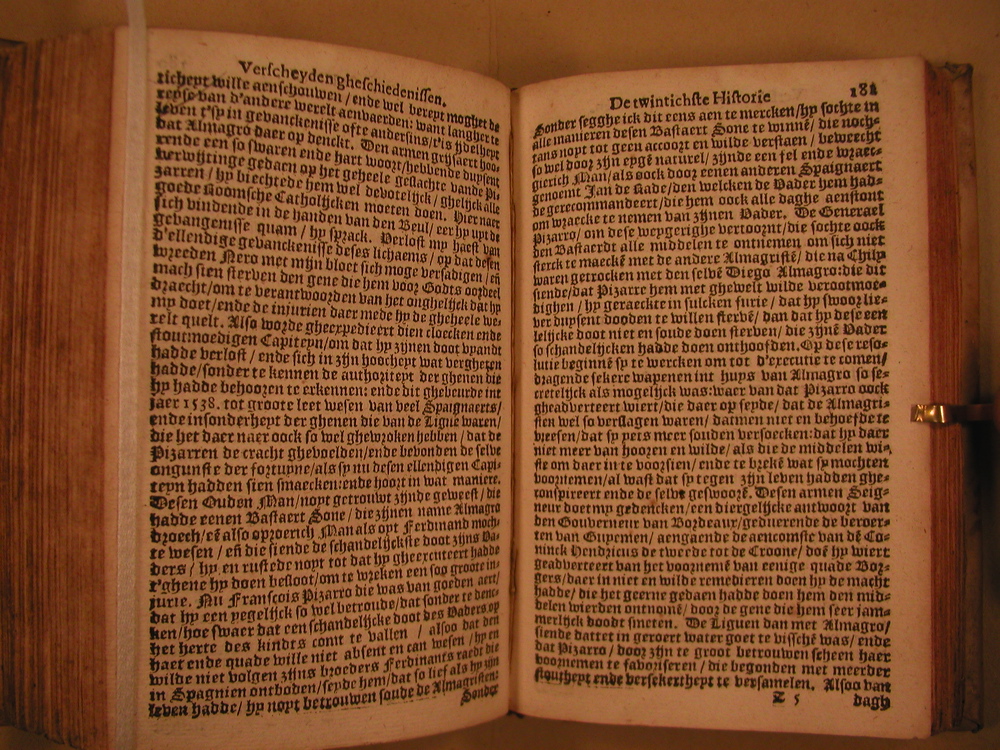 Verscheyden gheschiedenissen.
richept wille aenschouwen / ende wel berept moghet de
repse van d'andere werelt aenvaerden: want langher te
leven t'sy in gevanckenisse ofte andersins / t'is ijdelhept
dat Almagro daer op denckt. Den armen grijsaert hoo-
rende een so swaren ende hart woort / hebbende duysent
verwijtinge gedaen op het geheele geslachte vande Pi-
zarren / hy biechtede hem wel devotelijck / ghelijck alle
goede Roomsche Catholijcken moeten doen. Hier naer
sich vindende in de handen van den Beul / eer hy upt de
gevangenisse quam / hy sprack. Verlost my haest van
d'ellendige gevanckenisse deses lichaems / op dat desen
wreeden Nero met mijn bloet sich moge versadigen / eñ
mach sien sterven den gene die hem voor Godts oordeel
draecht / om te verantwoorden van het onghelijck dat hy
my doet / ende de injurien daer mede hy de gheheele we-
relt quelt. Also worde gheexpedieert dien cloecken ende
stoutmoedigen Capiteyn / om dat hy zijnen doot vyandt
hadde verlost / ende sich in zijn hoochept wat vergheten
hadde / sonder te kennen de authoritept der ghenen die
hy hadde behooren te erkennen: ende dit ghebeurde int
jaer 1538. tot groote leet wesen van veel Spaignaerts /
ende insonderhept der ghenen die van de Ligue waren /
die het daer naer oock so wel ghewroken hebben / dat de
Pizarren de cracht ghevoelden / ende bevonden de selve
ongunste der fortuyne / als sy nu desen ellendigen Capi-
teyn hadden sien smaecken: ende hoort in wat maniere.
Desen Ouden Man / noyt getrouwt zijnde geweest / die
hadde eenen Bastaert Sone / die zijnen name Almagro
droech / eñ also oproerich Man als opt Ferdinand moch-
te wesen / eñ die siende de schandelijckste doot zijns Va-
ders / hy en rustede noyt tot dat hy gheexcuteert hadde
t'ghene hy doen besloot / om te wreken een soo groote in-
jurie. Nu Fransçois Pizarro die was van goeden aert /
dat hy een yegelijck so wel betroude / dat sonder te denc-
ken / hoe swaer dat een schandelijcke doot des Vaders op
het herte des kindts comt te vallen / alsoo dat den
haet ende quade wille niet absent en can wesen / hy en
wilde niet volgen zijns broeders Ferdinants raedt die
in Spagnien ontboden / seyde hem / dat so lief als hy zijn
leven hadde / hy noyt betrouwen soude de Almagristen:
Sonder
De twintichste Historie 181
Sonder segghe ick dit eens aen te mercken / hy sochte in
alle manieren desen Bastaert Sone te winnē / die noch-
tans noyt tot geen accoort en wilde verstaen / beweecht
so wel door zijn eygē naturel / zijnde een fel ende wraec-
gierich Man / als oock door eenen anderen Spaignaert
genoemt Jan de Rade / den welcken de Vader hem had-
de gerecommandeert / die hem oock alle daghe aenstont
om wraecke te nemen van zijnen Vader. De Generael
Pizarro / om dese weygerighe vertoornt / die sochte oock
den Bastaerdt alle middelen te ontnemen / om sich niet
sterck te maeckē met de andere Almagristē / die na Chily
waren getrocken met den selvē Diego Almagro: die dit
siende / dat Pizarre hem met ghewelt wilde verootmoe-
dighen / hy geraeckte in sulcken furie / dat hy swoor lie-
ver duysent dooden te willen stervē / dan dat hy dese een
lelijcke doot niet en soude doen sterven / die zijnē Vader
so schandelijcken hadde doen onthoofden. Op dese reso-
lutie beginnē sy te wercken om tot d'executie te comen /
dragende sekere wapenen int huys van Almagro so se-
cretelijck als mogelijck was: waer van dat Pizarro oock
gheadverteert wiert / die daer op seyde / dat de Almagri-
sten wel so verslagen waren / datmen niet en behoefde te
vreesen / dat sy yets meer souden versoecken: dat hy daer
niet meer van hooren en wilde / als die de middelen wi-
ste om daer in te voorsien / ende te brekē wat sy mochten
voornemen / al wast dat sy tegen zijn leven hadden ghe-
conspireert ende de selve geswoorē. Desen armen Seig-
neur doet my gedencken / een diergelijcke antwoort van
den Gouverneur van Bordeaux / geduerende de beroer-
ten van Guyenien / aengaende de aencomste van dē Co-
ninck Hendricus de tweede tot de Croone / doē hy wiert
geadverteert van het voornemē van eenige quade Bor-
gers / daer in niet en wilde remedieren doen hy de macht
hadde / die het geerne gedaen hadde doen hem den mid-
delen wierden ontnomē / door de gene die hem seer jam-
merlijck doodt smeten. De Liguen dan met Almagro /
siende dattet in geroert water goet te visschē was / ende
dat Pizarro / door zijn te groot betrouwen scheen haer
voornemen te favoriseren / die begonden met meerder
stouthept ende versekerthept te versamelen. Alsoo van
Z 5 dagh